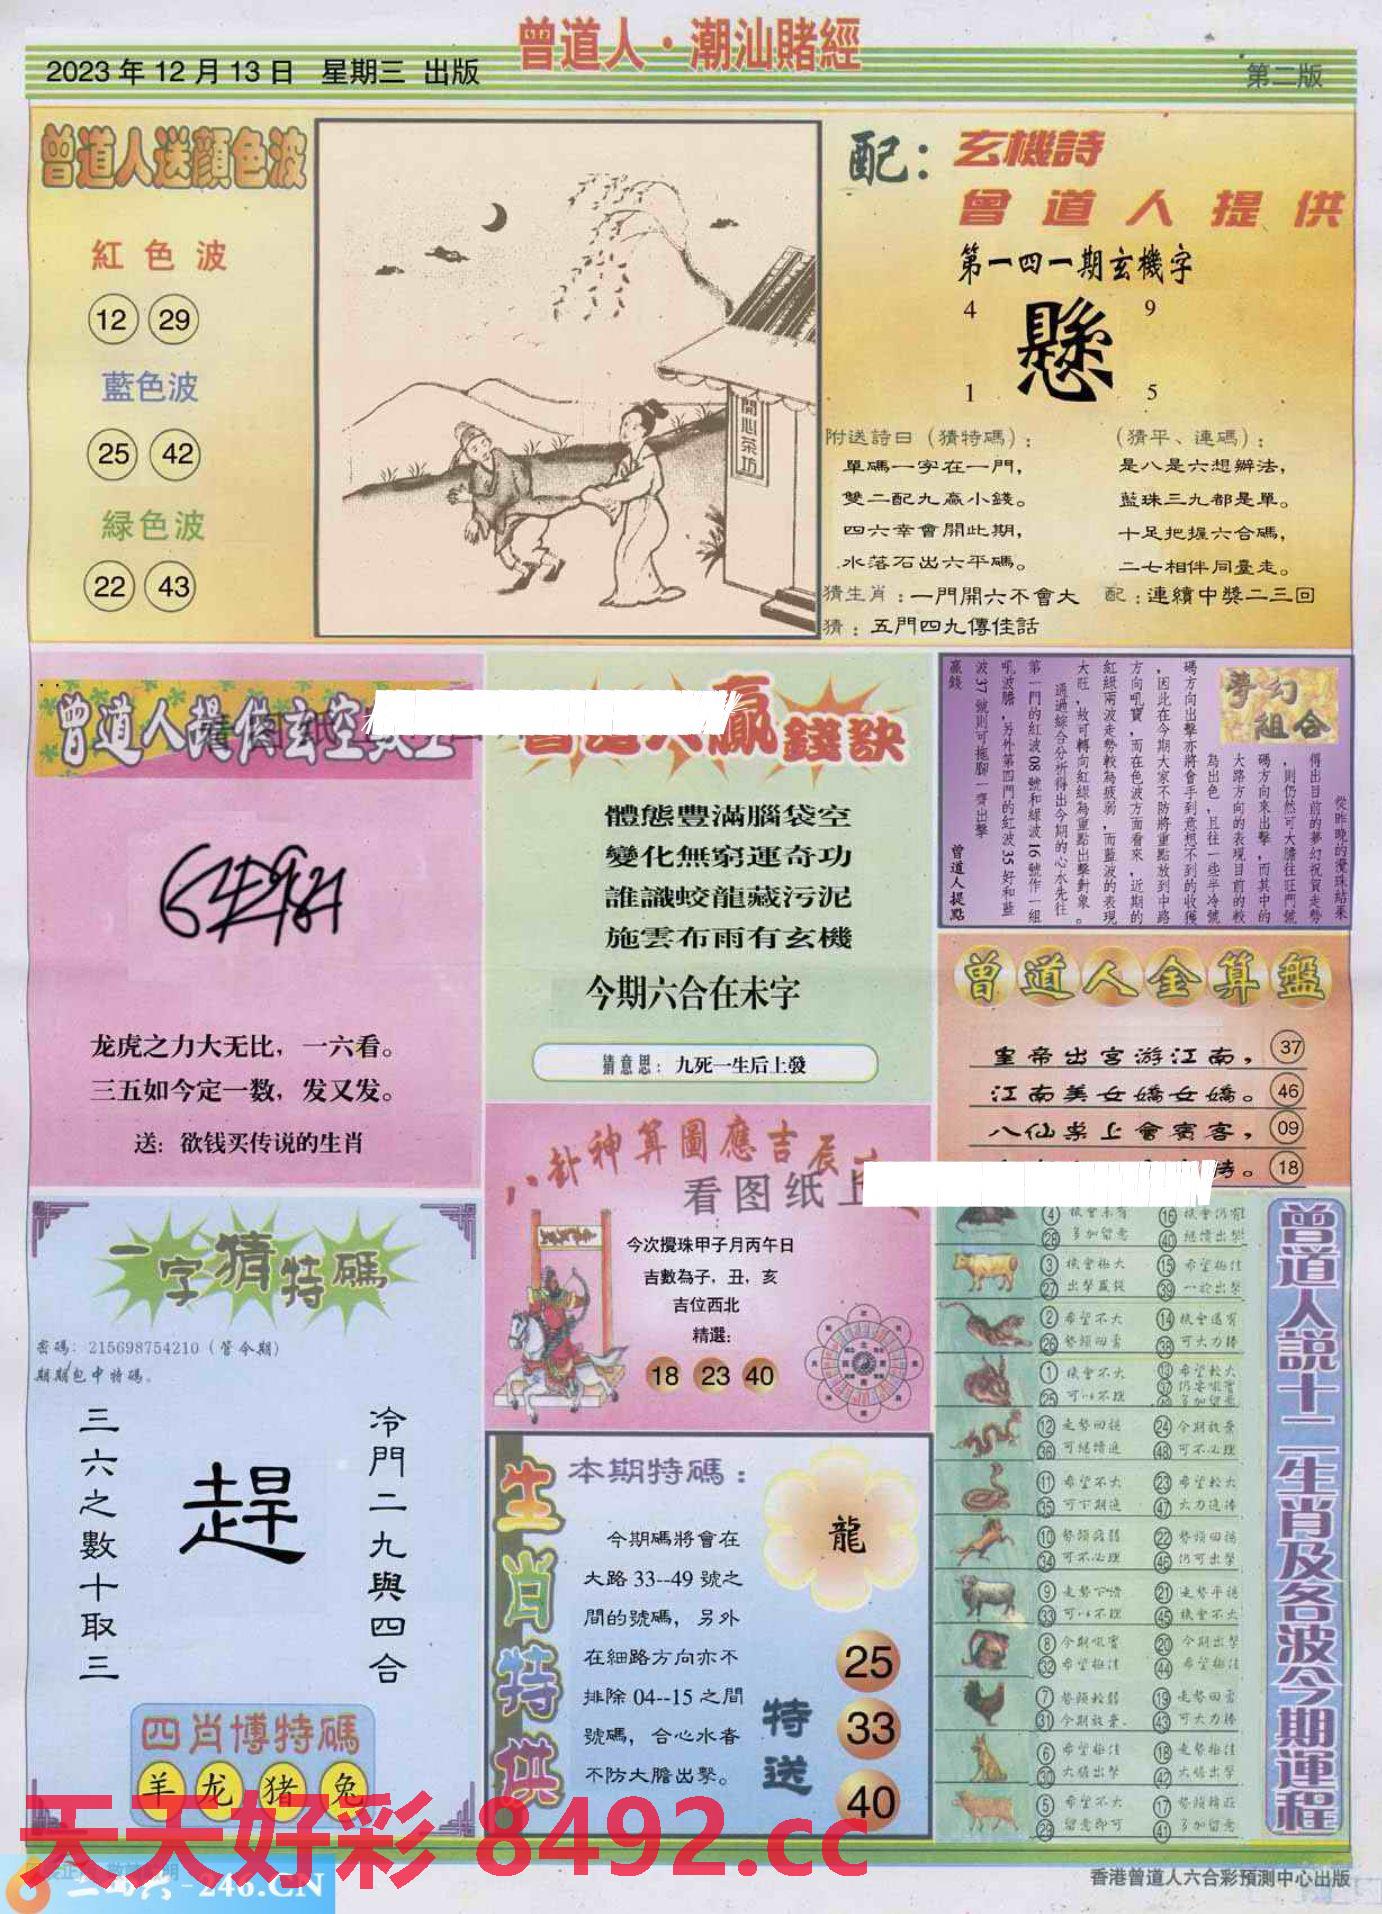 曾道人·潮汕賭經
2023年12月13日 星期三 出版
第二版
曾道人送顏色波
紅色波
12 29
藍色波
25 42
緑色波
22 43
開心茶坊
配：玄機詩
曾道人提供
第一四一期玄機字
4 9
懸
1 5
附送詩曰（猜特碼）：
單碼一字在一門，
雙二配九贏小錢。
四六幸會開此期，
水落石出六平碼。
（猜平、連碼）：
是八是六想辦法，
藍珠三九都是單。
十足把握六合碼，
二七相伴同臺走。
猜生肖：一門開六不會大
配：連續中獎二三回
猜：五門四九傳佳話
曾道人提供玄空
龙虎之力大无比，一六看。
三五如今定一数，发又发。
送：欲钱买传说的生肖
贏錢訣
體態豐滿腦袋空
變化無窮運奇功
誰識蛟龍藏污泥
施雲布雨有玄機
今期六合在未字
猜意思：九死一生后上發
夢幻組合
從昨晚的攪珠結果
得出目前的夢幻祝賀走勢
，則仍然可大膽往旺門號
碼方向來出擊，而其中的
大路方向的表現目前的較
為出色，且往一些半冷號
碼方向出擊亦將會手到意想不到的收獲
，因此在今期大家不防將重點放到中路
方向吼寶，而在色波方面看來，近期的
紅綠兩波走勢較為疲弱，而藍波的表現
大旺，故可轉向紅綠為重點出擊對象。
通過綜合分析得出今期的心水先往
第一門的紅波08號和綠波16號作一組
吼波膽，另外第四門的紅波35好和藍
波37號則可拖腳一齊出擊
贏錢
曾道人提點
曾道人金算盤
皇帝出宮游江南， 37
江南美女嬌女嬌。 46
八仙桌上會賓客， 09
詩。 18
八卦神算圖應吉辰
看图纸上
今次攪珠甲子月丙午日
吉數為子，丑，亥
吉位西北
精選：
18 23 40
一字猜特碼
密碼：215698754210（管今期）
期期包中特碼。
冷門二九與四合
趕
三六之數十取三
四肖博特碼
羊 龙 猪 兔
生肖特供
本期特碼：
龍
今期碼將會在
大路33--49號之
間的號碼，另外
在細路方向亦不
排除04--15之間
號碼，合心水者
不防大膽出擊。
特送
25
33
40
曾道人説十二生肖及各波今期運程
④ 機會未有 ⑯ 機會仍有
㉘ 多加留意 ㊵ 繼續出擊
③ 機會極大 ⑮ 希望極佳
㉗ 出擊贏錢 ㊴ 一於出擊
② 希望不大 ⑭ 機會還有
㉖ 勢頭回落 ㊳ 可大力捧
① 機會不大 ⑬ 希望較大
㉕ 可以不理
⑫ 走勢回穩 ㉔ 今期放棄
㊱ 可繼續進 ㊽ 可不必理
⑪ 希望不大 ㉓ 希望較大
㉟ 可下期進 ㊼ 大力追捧
⑩ 勢頭疲弱 ㉒ 勢頭回穩
㉞ 可不必理 ㊻ 仍可出擊
⑨ 走勢下滑 ㉑ 走勢平穩
㉝ 可以不理 ㊺ 機會不大
⑧ 今期吼寶 ⑳ 今期出擊
㉜ 希望極佳 ㊹ 希望極佳
⑦ 勢頭較弱 ⑲ 走勢回落
㉛ 今期放棄 ㊸ 可大力捧
⑥ 希望極佳 ⑱ 走勢極佳
㉚ 大膽出擊 ㊷ 大膽出擊
⑤ 希望不大 ⑰ 勢頭轉旺
㉙ 留意即可 ㊶ 多加留意
天天好彩 8492.cc
二四六-246.CN
香港曾道人六合彩預測中心出版